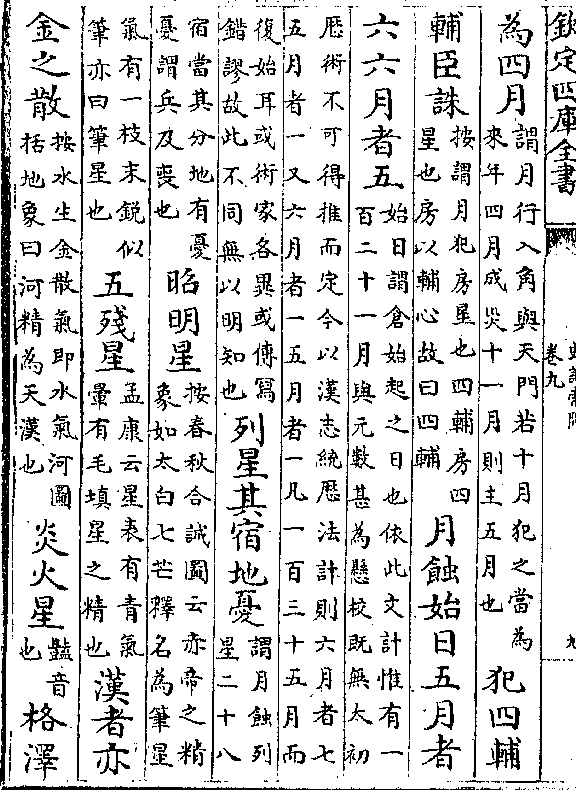 欽定四庫全書
史記索隱
卷九
九
為四月謂月行入角與天門若十月犯之當為
來年四月成災十一月則主五月也犯四輔
輔臣誅按謂月犯房星也四輔房四
星也房以輔心故曰四輔月蝕始日五月者
六六月者五始日謂倉始起之日也依此文計惟有一
百二十一月與元數甚為懸校既無太初
厯術不可得推而定今以漢志統厯法計則六月者七
五月者一又六月者一五月者一凡一百三十五月而
復始耳或術家各異或傳寫
錯謬故此不同無以明知也列星其宿地憂謂月蝕列
星二十八
宿當其分地有憂
憂謂兵及喪也昭明星按春秋合誠圖云亦帝之精
象如太白七芒釋名為筆星
氣有一枝末銳似
筆亦曰筆星也五殘星孟康云星表有青氣
暈有毛填星之精也漢者亦
金之散按水生金散氣即水氣河圖
括地象曰河精為天漢也炎火星豔音
也格澤